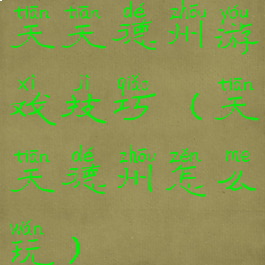 tiān tiān dé zhōu yóu
天天德州游
xì jì qiǎo tiān
戏技巧（天
tiān dé zhōu zěn me
天德州怎么
wán
玩）